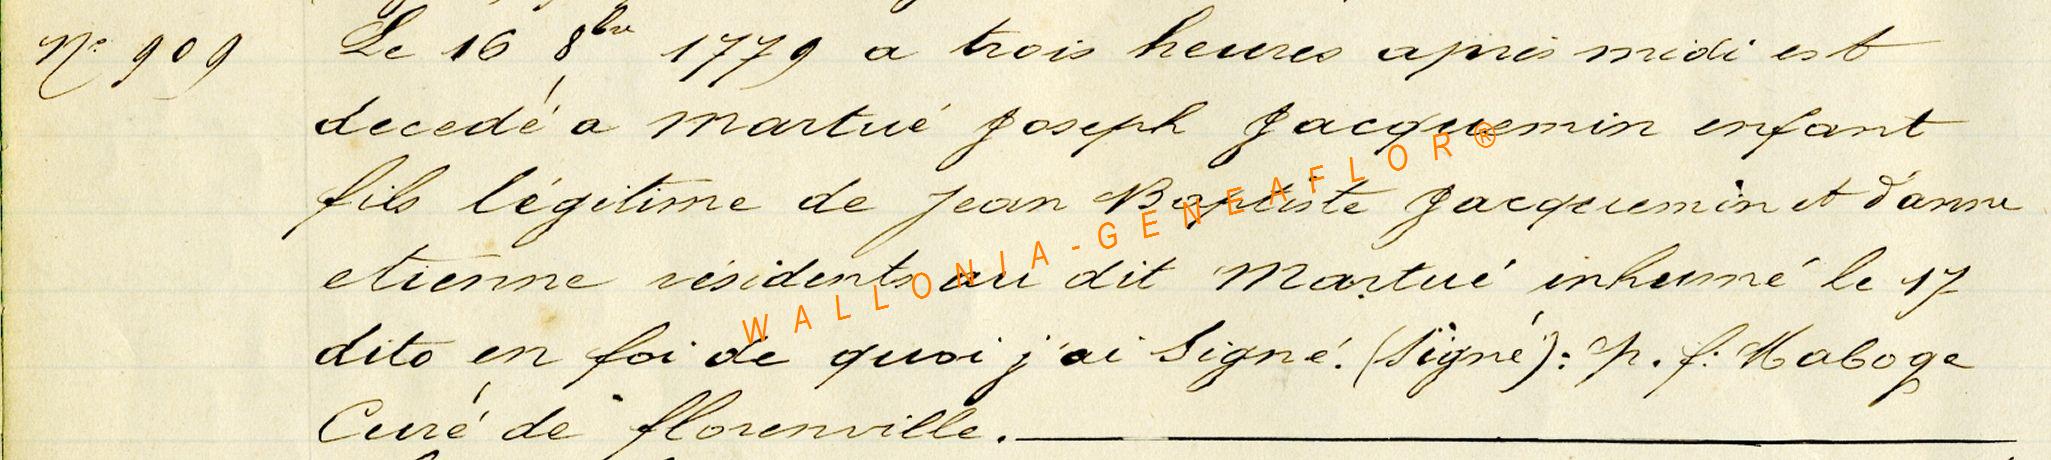 N° 909 Le 16 8bre 1779 a trois heures après midi est
decedé a Martué Joseph Jacquemin enfant
fils légitime de Jean Baptiste Jacquemin et d'anne
etienne résidents au dit Martué inhumé le 17
dito en foi de quoi j'ai Signé. (Signé): p. f. Maboge
Curé de florenville.
WALLONIA-GENEAFLOR®